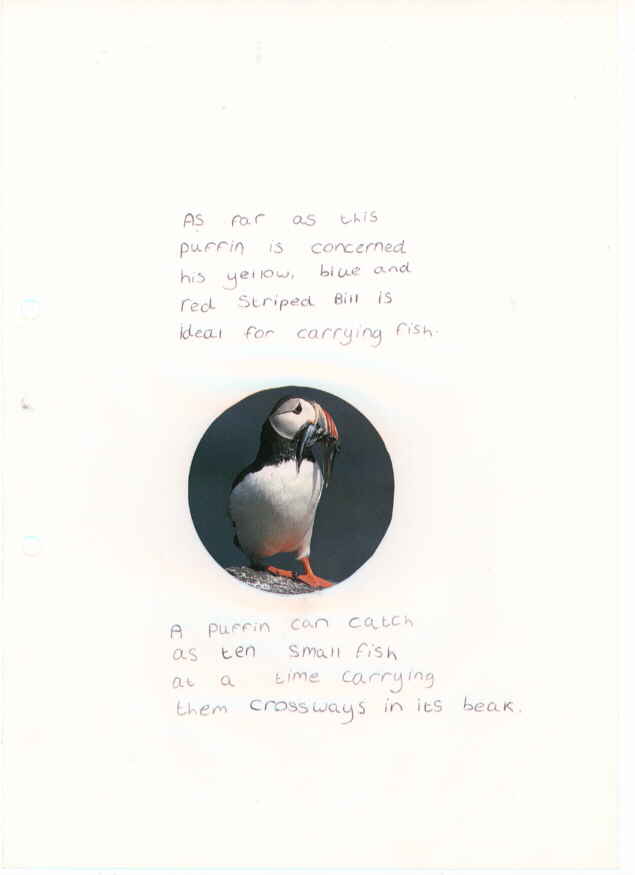 As far as this
puffin is concerned
his yellow, blue and
red Striped Bill is
ideal for carrying fish.
A puffin can catch
as ten small fish
at a time carrying
them crossways in its beak.